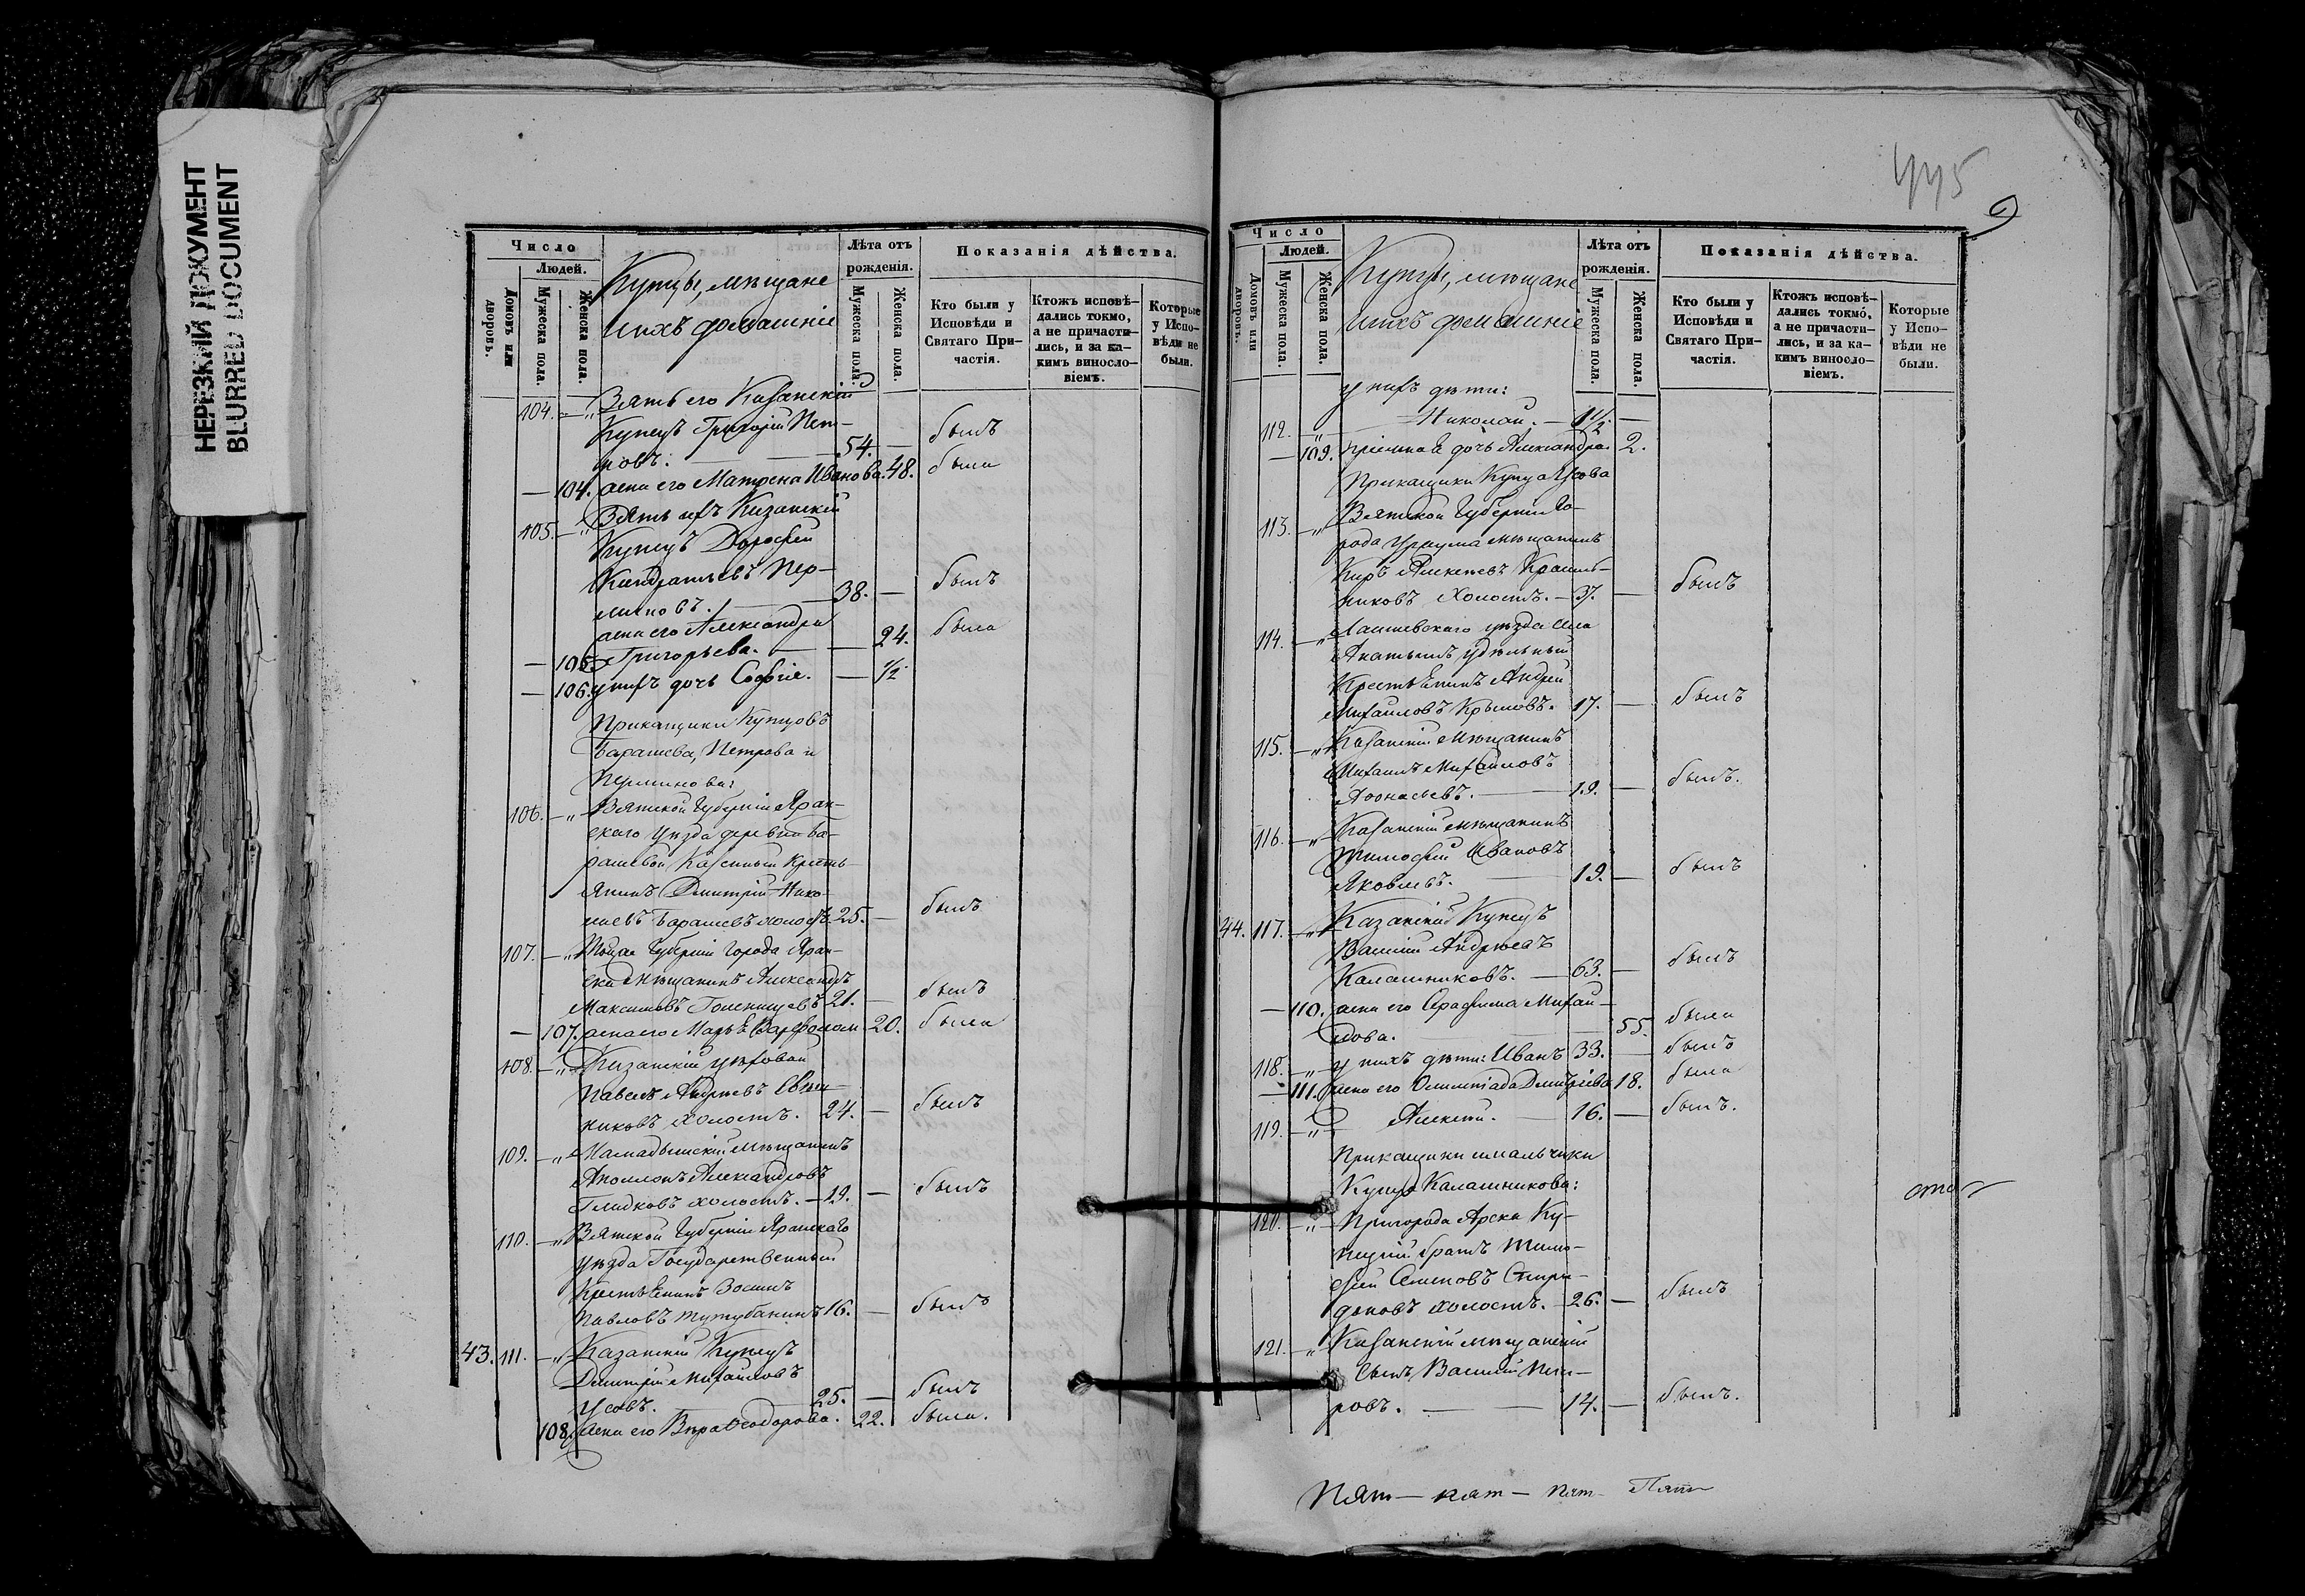 НЕРЕЗКИЙ ДОКУМЕНТ
BLURRED DOCUMENT
Число
Людей.
Домовъ или дворовъ.
Мужеска пола.
Женска пола.
Купцы, мѣщане
и ихъ домашніе
Лѣта отъ рожденія.
Мужеска пола.
Женска пола.
Показанія дѣйства.
Кто были у Исповѣди и Святаго Причастія.
Ктожъ исповѣдались токмо, а не причастились, и за какимъ винословіемъ.
Которые у Исповѣди не были.
104. — „ Зять его Казанскій
Купецъ Григорій Пет-
ровъ. — 54. — былъ
— 104. жена его Матрена Иванова. 48. была
105. — „ Зять ихъ Казанскій
Купецъ Дорофей
Кондратьевъ Пер-
миновъ. — 38. — былъ
жена его Александра
— 105. Григорьева. — — 24. была
— 106. у нихъ дочь Софія. — 1/2
Прикащики Купцовъ
Барашева, Петрова и
Перминова:
106. — „ Вятской Губерніи Яран-
скаго уѣзда деревни Ба-
рашевой Казенный кресть-
янинъ Дмитрій Нико-
лаевъ Барашевъ холостъ. 25. — былъ
107. — „ Тойже Губерніи Города Яран-
ска мѣщанинъ Александръ
Максимовъ Голенищевъ 21. — былъ
— 107. жена его Марья Варфолом 20. была
108. — „ Казанскій цѣховой
Павелъ Андреевъ
никовъ холостъ. 24. — былъ
109. — „ Мамадышскій мѣщанинъ
Аполлонъ Александровъ
Гладковъ холостъ. — 19. — былъ
110. — „ Вятской Губерніи Яранскаго
уѣзда Государственный
Крестьянинъ
Павловъ 16. — былъ
43. 111. — „ Казанскій Купецъ
Дмитрій Михайловъ
Усовъ. — 25. — былъ
108. жена его Вѣра Ѳеодорова. 22. была.
445
9
Число
Людей.
Домовъ или дворовъ.
Мужеска пола.
Женска пола.
Купцы, мѣщане
и ихъ домашніе
Лѣта отъ рожденія.
Мужеска пола.
Женска пола.
Показанія дѣйства.
Кто были у Исповѣди и Святаго Причастія.
Ктожъ исповѣдались токмо, а не причастились, и за какимъ винословіемъ.
Которые у Исповѣди не были.
у нихъ дѣти:
112. „ — Николай. — 1 1/2 —
— 109. пріемная дочь Александра. 2.
Прикащики Купца Усова
113. — „ Вятской Губерніи Го-
рода Уржума мѣщанинъ
Киръ Алексеевъ Красиль-
никовъ холостъ. — 37. — былъ
114. — „ Лаишевскаго уѣзда села
удѣльный
Крестьянинъ Андрей
Михайловъ Крыловъ. 17. — былъ
115. — „ Казанскій мѣщанинъ
Михаилъ Михайловъ
Аѳонасьевъ. — 19. — былъ.
116. — „ Казанскій мѣщанинъ
Тимофей Ивановъ
Яковлевъ. — 19. — былъ
44. 117. — „ Казанскій Купецъ
Василій Андреевъ
Калашниковъ. — 63. — былъ
— 110. жена его Серафима Михай-
лова. — — 55. была
118. — „ у нихъ дѣти: Иванъ 33. — былъ
— 111. жена его Олимпіада Дмитріева 18. была
119. — „ Алексѣй. — 16. — былъ.
Прикащики и мальчики
Купца Калашникова:
120. — „ Пригорода Арска Ку-
пецкій братъ Тимо-
фей Семеновъ Спири-
доновъ холостъ. — 26. — былъ
121. — „ Казанскій мѣщанскій
сынъ Василій Пет-
ровъ. — — 14. — былъ.
Пят — пят — пят — Пят